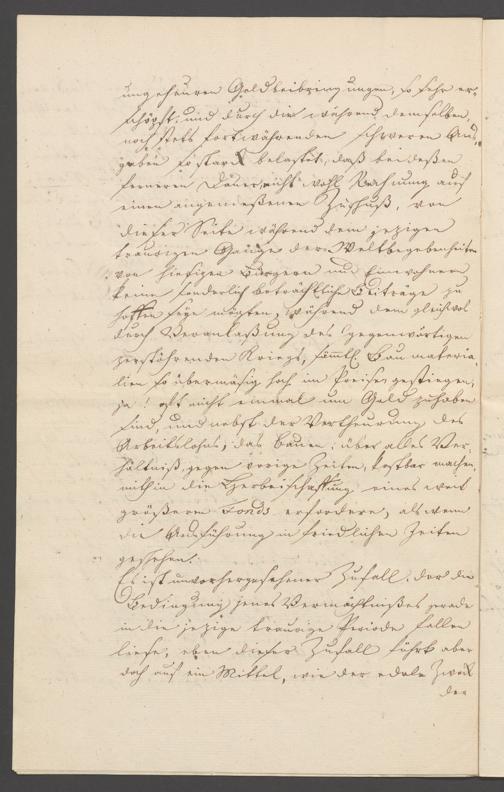 ungeheuren Geldbeibringungen, so sehr er-
schöpft, und durch die während demselben,
noch stets fortwährenden schweren Aus-
gaben so stark belastet, daß bei deßen
ferneren Dauer, nicht wohl Rechnung auf
einen angemeßenen Zuschuß, von
dieser Seite während dem jezigen
traurigen Gange der Weltbegebenheiten
von hiesigen Bürgern und Einwohnern
keine sonderlich beträchtliche Beiträge zu
hoffen seyn mögten, während dem gleichwol
durch Veranlaßung des gegenwärtigen
zerstöhrenden Kriegs, sämtl. Baumateria-
lien so übermäsig hoch im Preise gestiegen,
ja! oft nicht einmal um Geld zuhaben
sind, und nebst der Vertheurung des
Arbeitslohns, das Bauen, über alles Ver-
hältniß gegen vorige Zeiten, kostbar machen,
mithin die Herbeischaffung eines weit
größeren Fonds erfordere, als wenn
die Ausführung in friedlichen Zeiten
geschehen.
Es ist unvorhergesehener Zufall, daß die
Bedingung jenes Vermächtnißes gerade
in die jezige traurige Periode fallen
liese, eben dieser Zufall führt aber
doch auf ein Mittel, wie der edele Zweck
der